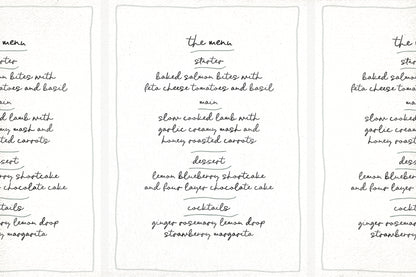 the menu
starter
baked salmon bites with
feta cheese tomatoes and basil
main
slow cooked lamb with
garlic creamy mash and
honey roasted carrots
dessert
lemon blueberry shortcake
and four layer chocolate cake
cocktails
ginger rosemary lemon drop
strawberry margarita
menu
starter
salmon bites with
tomatoes and basil
main
cooked lamb with
creamy mash and
roasted carrots
dessert
blueberry shortcake
chocolate cake
cocktails
rosemary lemon drop
margarita
the
starter
baked salmon
feta cheese tomatoes
main
slow cooked
garlic creamy
honey roasted
dessert
lemon blueberry
and four layer
cocktails
ginger rosemary
strawberry